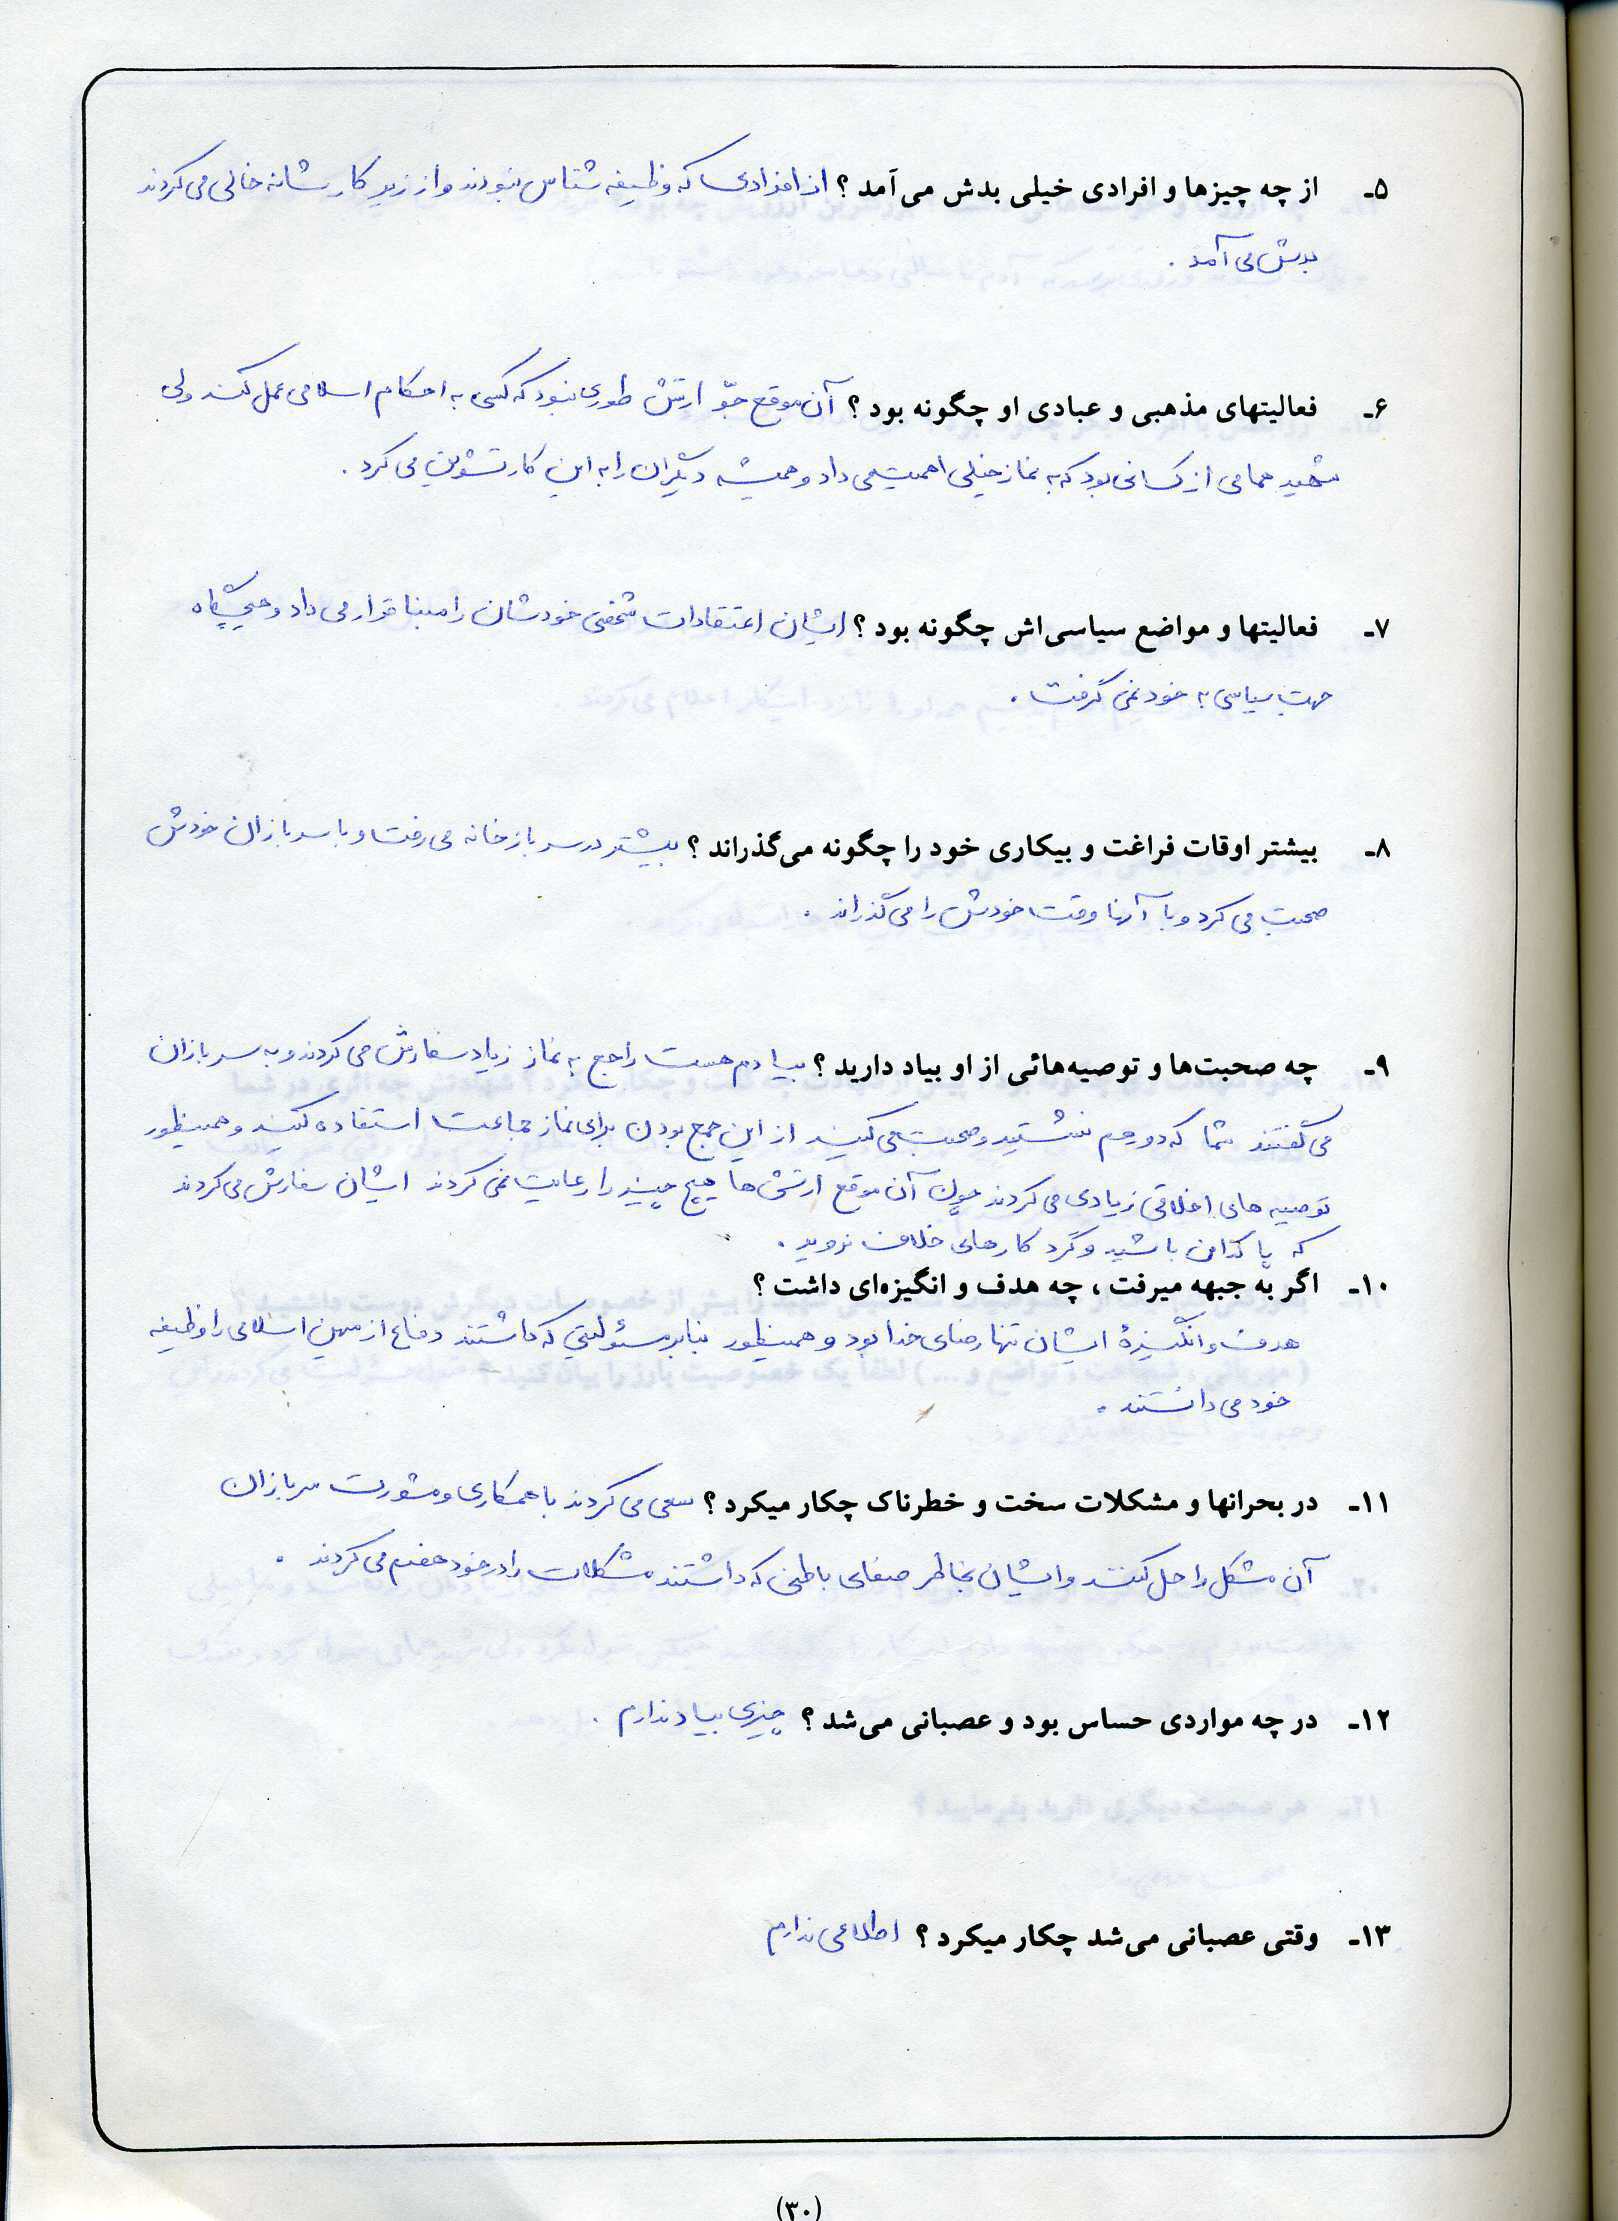 ۵ـ از چه چیزها و افرادی خیلی بدش می‌آمد ؟ از افرادی که وظیفه شناس نبودند و از زیر کار شانه خالی می‌کردند
بدش می‌آمد .
۶ـ فعالیتهای مذهبی و عبادی او چگونه بود ؟ آن موقع جوّ ارتش طوری نبود که کسی به احکام اسلامی عمل کند ولی
شهید همامی از کسانی بود که به نماز خیلی اهمیت می داد و همیشه دیگران را به این کار تشویق می کرد .
۷ـ فعالیتها و مواضع سیاسی‌اش چگونه بود ؟ ایشان اعتقادات شخصی خودشان را مبنا قرار می داد و هیچگاه
جهت سیاسی به خود نمی گرفت .
۸ـ بیشتر اوقات فراغت و بیکاری خود را چگونه می‌گذراند ؟ بیشتر در سربازخانه می رفت و با سربازان خودش
صحبت می کرد و با آنها وقت خودش را می گذراند .
۹ـ چه صحبت‌ها و توصیه‌هائی از او بیاد دارید ؟ بیادم هست راجع به نماز زیاد سفارش می کردند و به سربازان
می گفتند شما که دور هم نشستید و صحبت می کنید از این جمع بودن برای نماز جماعت استفاده کنید و همینطور
توصیه های اخلاقی زیادی می کردند چون آن موقع ارتشی ها هیچ چیز را رعایت نمی کردند ایشان سفارش می کردند
که پاکدامن باشید و گرد کارهای خلاف نروید .
۱۰ـ اگر به جبهه میرفت ، چه هدف و انگیزه‌ای داشت ؟
هدف و انگیزهٔ ایشان تنها رضای خدا بود و همینطور بنابر مسئولیتی که داشتند دفاع از میهن اسلامی را وظیفه
خود می دانستند .
۱۱ـ در بحرانها و مشکلات سخت و خطرناک چکار میکرد ؟ سعی می کردند با همکاری و مشورت سربازان
آن مشکل را حل کنند و ایشان بخاطر صفای باطنی که داشتند مشکلات را در خود هضم می کردند .
۱۲ـ در چه مواردی حساس بود و عصبانی می‌شد ؟ چیزی بیاد ندارم .
۱۳ـ وقتی عصبانی می‌شد چکار میکرد ؟ اطلاعی ندارم
(۳۰)